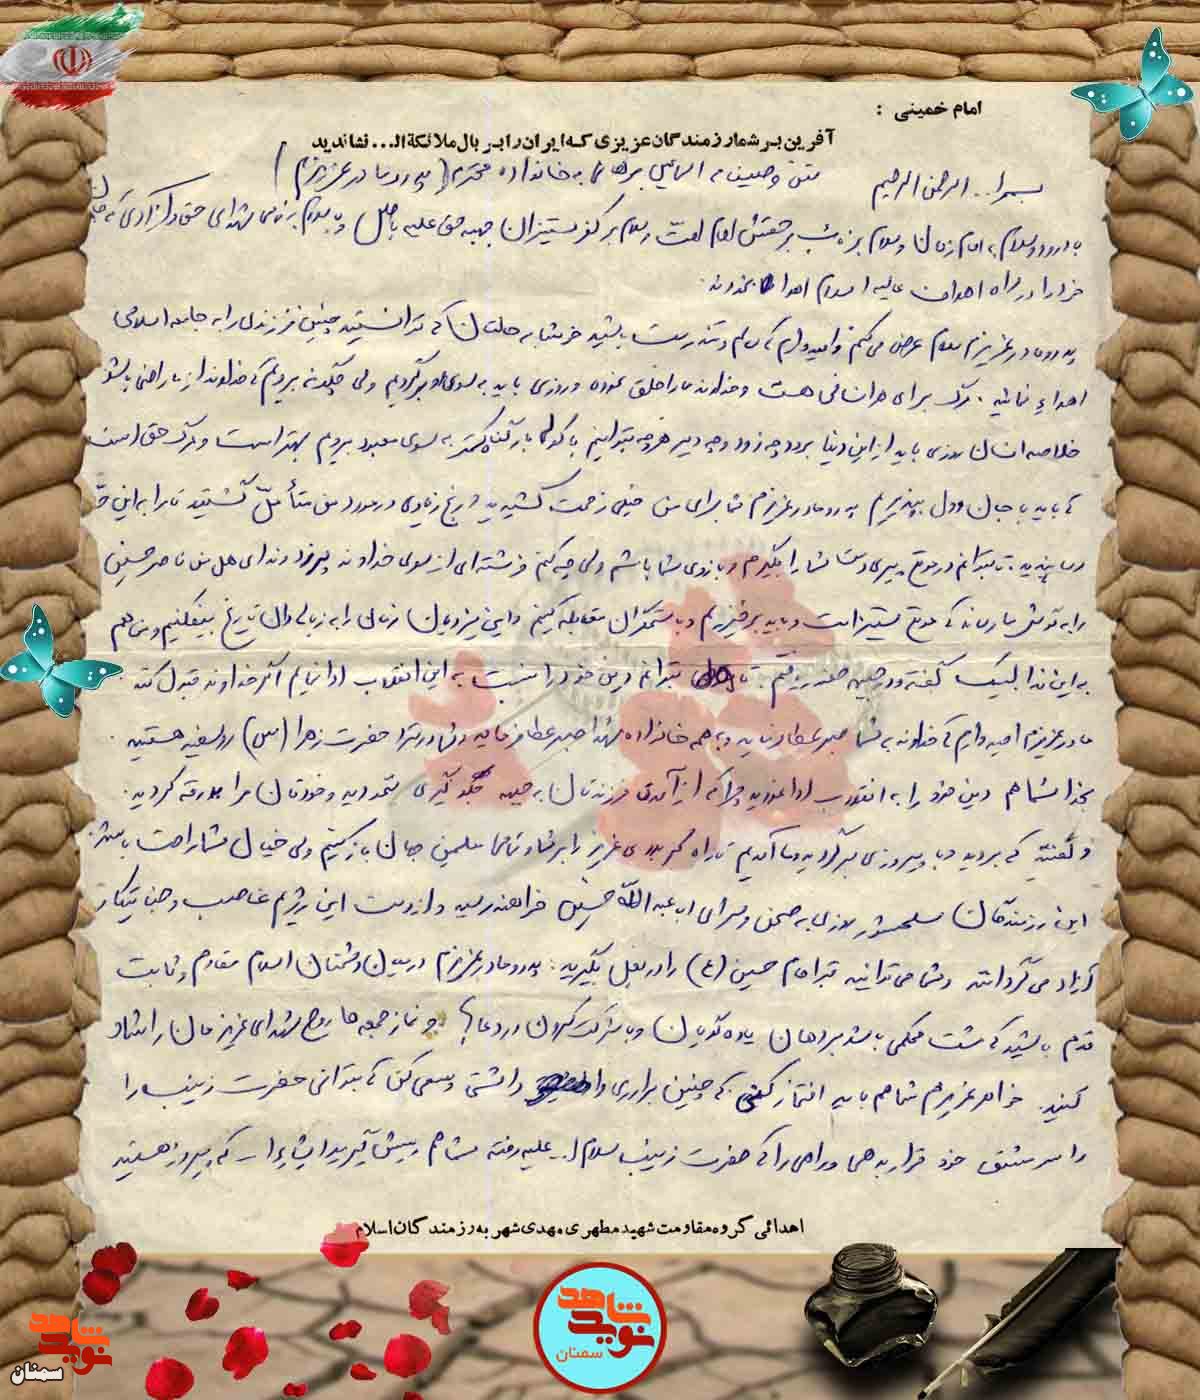 امام خمینی :
آفرین بر شما رزمندگان عزیزی که ایران را بر بال ملائکة الـ... نشاندید
بسم ا... الرحمن الرحیم متن وصیت نامه به خانواده محترم (پدر و مادر عزیزم)
با درود و سلام به امام زمان و سلام بر نائب بر حقش امام امت و سلام بر کفر ستیزان جبهه حق علیه باطل و با سلام به تمامی شهدای حق و آزادی که جان
خود را در راه اهداف عالیه اسلام اهدا نمودند.
پدر و مادر عزیزم سلام عرض می کنم و امیدوارم که سالم و تندرست باشید خوشا به حالتان که توانستید چنین فرزندی را به جامعه اسلامی
اهداء نمائید. مرگ برای هر انسانی هست و خداوند ما را خلق نموده و روزی باید به سوی او برگردیم ولی چگونه برویم که خداوند از ما راضی باشد
خلاصه انسان روزی باید از این دنیا برود چه زود و چه دیر هر چه بتوانیم با کوله بار گناه کمتر به سوی معبود برویم بهتر است و مرگ حق است
که باید با جان و دل بپذیریم پدر و مادر عزیزم شما برای من خیلی زحمت کشیدید و رنج زیادی در مورد من متأمل گشتید تا مرا به این حد
رساندید. تا بتوانم در موقع پیری دست شما را بگیرم و بازوی شما باشم ولی چه کنم فرشته ای از سوی خداوند و ندای هل من ناصر حسین
را به گوش ما رساند که موقع ستیز است و باید برخیزیم و با ستمگران مقابله کنیم و این یزیدیان زمان را به زباله دان تاریخ بیفکنیم و من هم
به این ندا لبیک گفته و در جبهه حضور یافتم. تا بتوانم دین خود را نسبت به این انقلاب ادا نمایم اگر خداوند قبول کند.
مادر عزیزم امیدوارم که خداوند به شما صبر عطا نماید و به همه خانواده شهدا صبر عطا فرماید و شما در نزد حضرت زهرا (س) روسفید هستید.
بخدا شما هم دین خود را به انقلاب ادا نمودید چرا که از آمدن فرزندتان به جبهه جلوگیری ننمودید و خودتان مرا بدرقه کردید.
و گفتید که بروید و با پیروزی برگردید و ما آمدیم تا راه کربلای عزیز را بر شما و تمامی مسلمین جهان باز کنیم ولی خیال شما راحت باشد.
این رزمندگان سلحشور روزی به صحن و سرای ابا عبدالله حسین خواهند رسید و از دست این رژیم غاصب و جنایتکار
آزاد می گردانند و شما می توانید قبر امام حسین (ع) را در بغل بگیرید. پدر و مادر عزیزم در میان دشمنان اسلام مقاوم و ثابت
قدم باشید که مشت محکمی باشد بر دهان یاوه گویان و با شرکت کردن در دعاها و نماز جمعه ها روح شهدای عزیزمان را شاد
کنید. خواهر عزیزم شما هم باید افتخار کنی که چنین برادری داشتی و سعی کن که بتوانی حضرت زینب را
را سرمشق خود قرار بدهی و راهی را که حضرت زینب سلام ا... علیه رفته شما هم پیش گیرید انشاءا... که پیروز هستید
اهدائی گروه مقاومت شهید مطهری مهدی شهر به رزمندگان اسلام
نوید شاهد
سمنان
نوید شاهد
سمنان